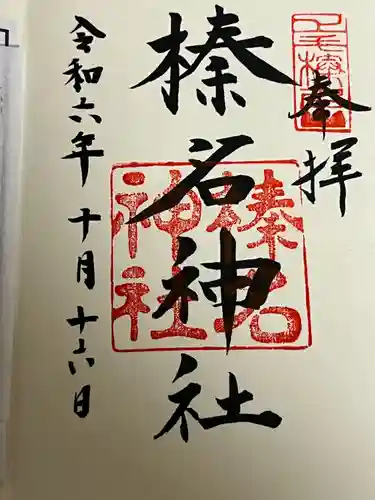 奉拝
上毛榛名
榛名神社
榛名
神社
令和六年十月十六日